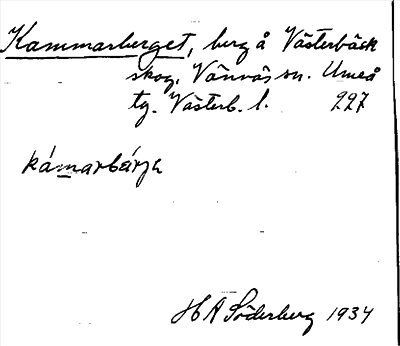 Kammarberget, berg å Västerbäck
skog, Vännäs sn. Umeå
tg. Västerb. l. 227
kámarbárje
H A Söderberg 1934